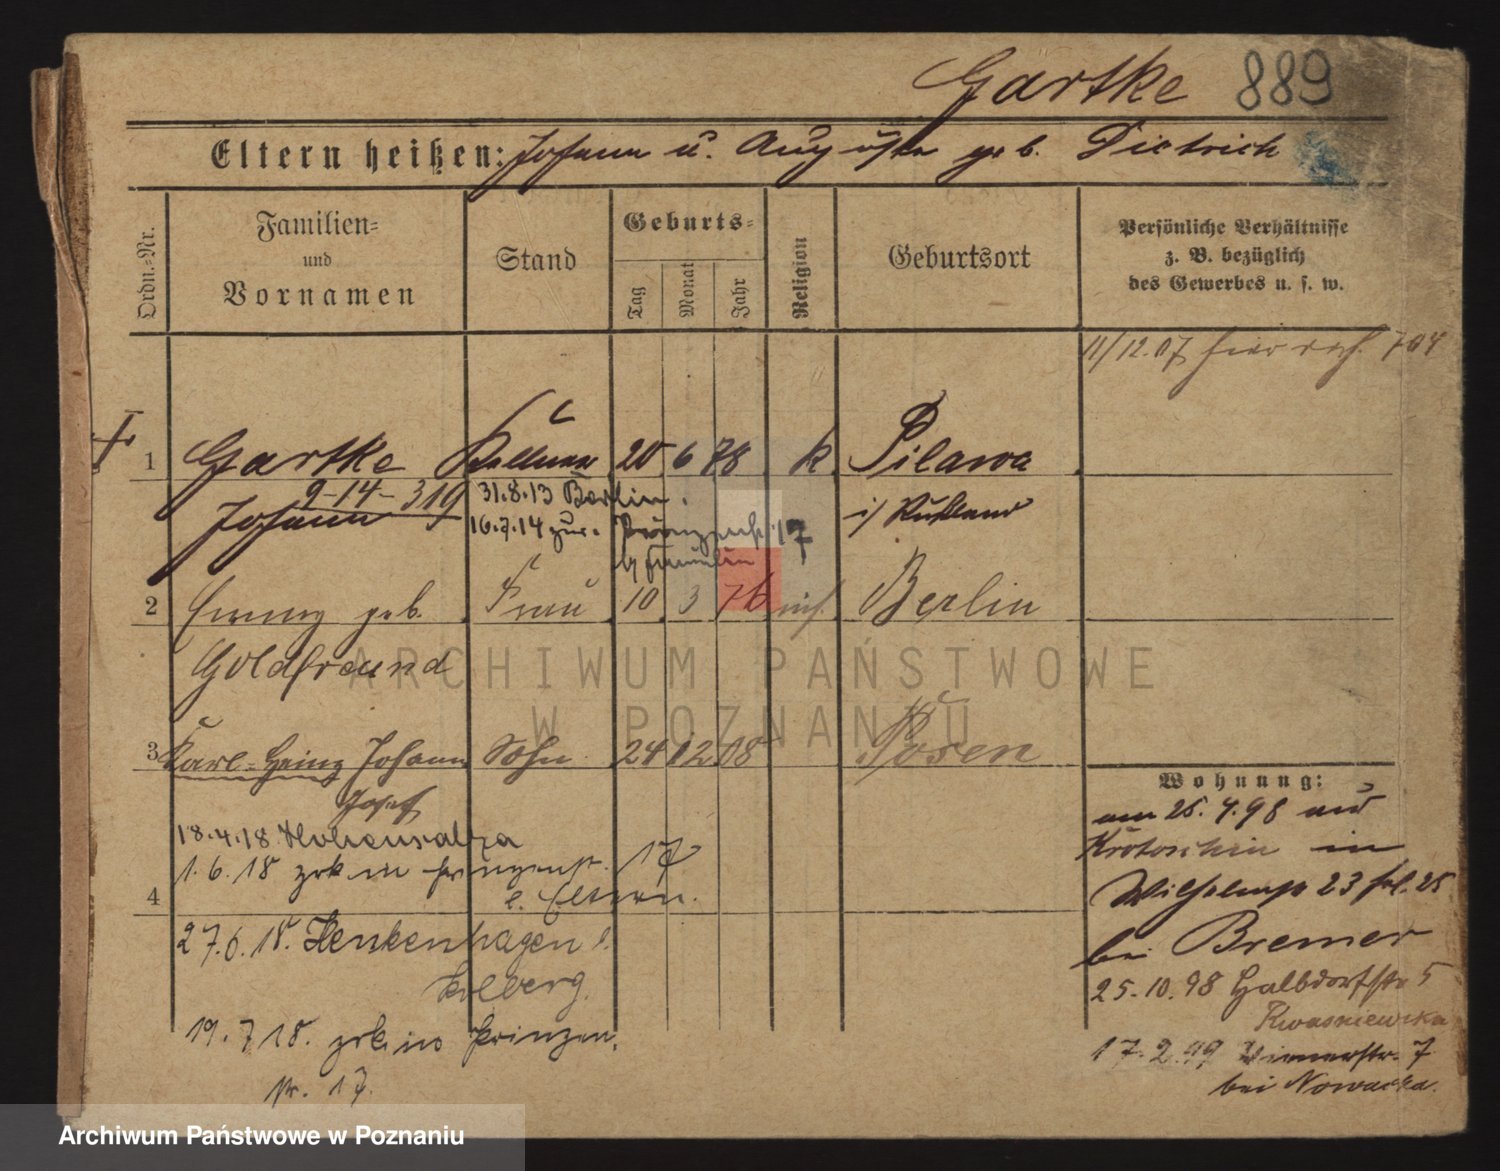 Gartke 889
Eltern heißen: Johann u. Auguste geb. Dietrich
Ordn.-Nr.
Familien-
und
Vornamen
Stand
Geburts-
Tag
Monat
Jahr
Religion
Geburtsort
Persönliche Verhältnisse
z. B. bezüglich
des Gewerbes u. s. w.
11/12.07 hier 704
1 Gartke Kellner 20 6 78 k Pilawa
9-14-319 31.8.13 Berlin.
Johann 16.7.14 zur. 17 i/ Rußland
b/ Familie
2 Emmy geb. Frau 10 3 76 Berlin
Goldfreund
3 Karl-Heinz Johann Sohn 24 12 08 Posen
Josef
18.4.18 Hohensalza
1.6.18 zrk in Prinzenstr. 17
4 b. Eltern.
27.6.18. Henkenhagen b.
Kolberg.
19.7.18. zrk. in Prinzen.
str. 17.
Wohnung:
am 26.4.98 aus
Krotoschin in
Wilhelmstr 23
bei Bremer
25.10.98 Halbdorfstr 5
Kwasniewska
17.2.99 Wienerstr. 7
bei Nowacka.
ARCHIWUM PAŃSTWOWE
W POZNANIU
Archiwum Państwowe w Poznaniu